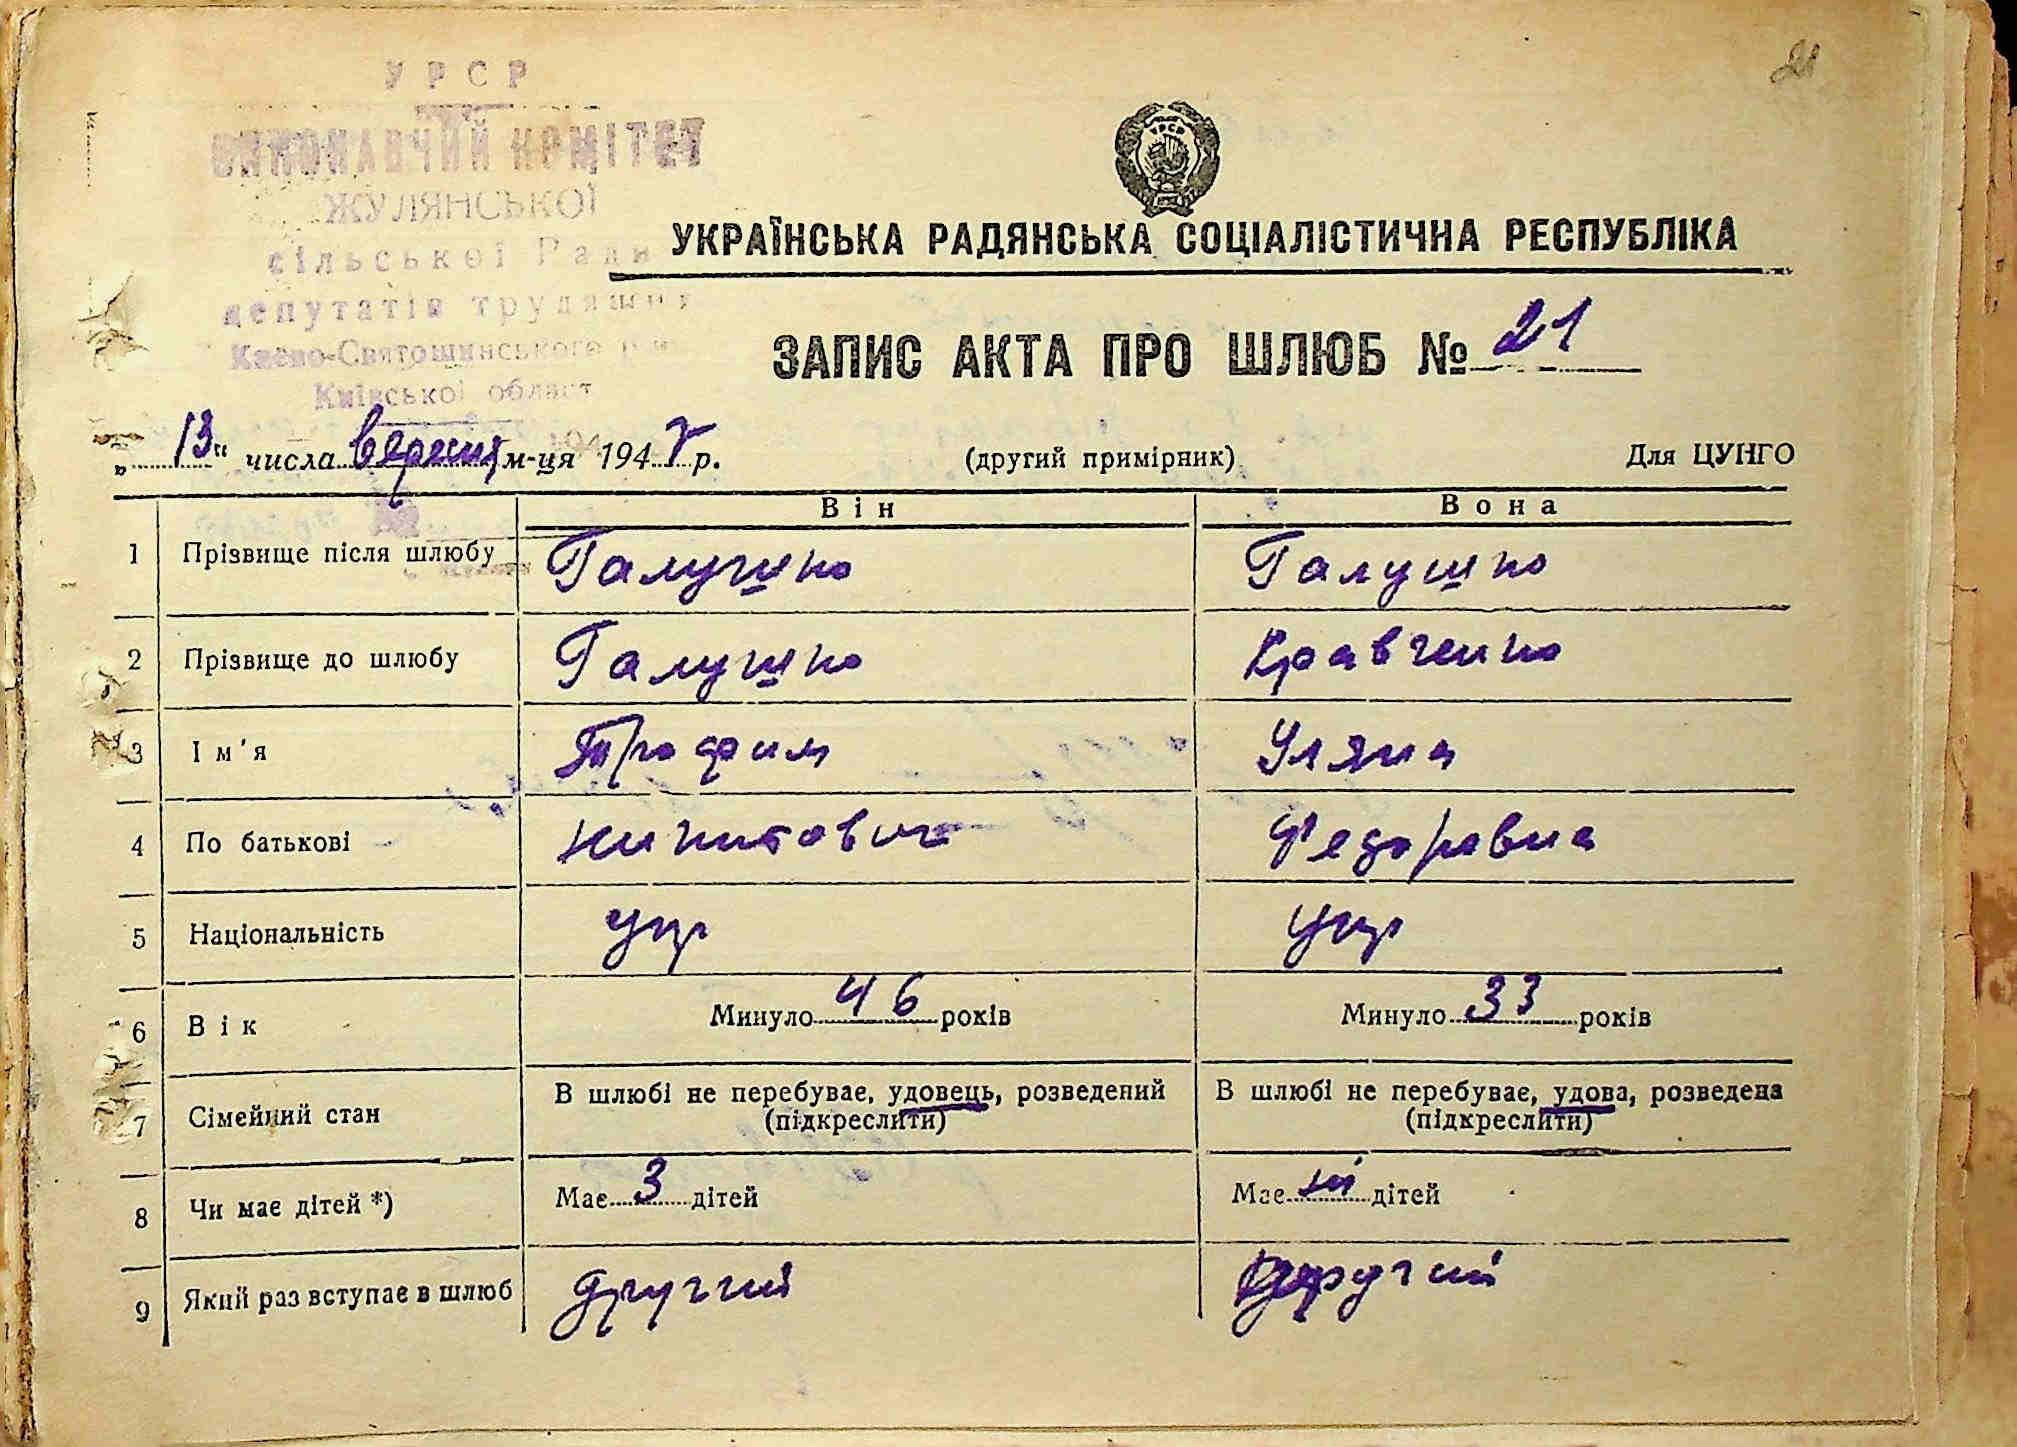 21
УРСР
ВИКОНАВЧИЙ КОМІТЕТ
ЖУЛЯНСЬКОЇ
сільської Ради
депутатів трудящих
Києво-Святошинського
Київської област
УРСР
УКРАЇНСЬКА РАДЯНСЬКА СОЦІАЛІСТИЧНА РЕСПУБЛІКА
ЗАПИС АКТА ПРО ШЛЮБ № 21
„13“ числа вересня м-ця 1947 р. (другий примірник) Для ЦУНГО
Він Вона
1 Прізвище після шлюбу Галушко Галушко
2 Прізвище до шлюбу Галушко Кравченко
3 Ім'я Трофим Уляна
4 По батькові Никитович Федоровна
5 Національність укр укр
6 Вік Минуло 46 років Минуло 33 років
7 Сімейний стан В шлюбі не перебуває, удовець, розведений (підкреслити) В шлюбі не перебуває, удова, розведена (підкреслити)
8 Чи має дітей *) Має 3 дітей Має ні дітей
9 Який раз вступає в шлюб другий другий